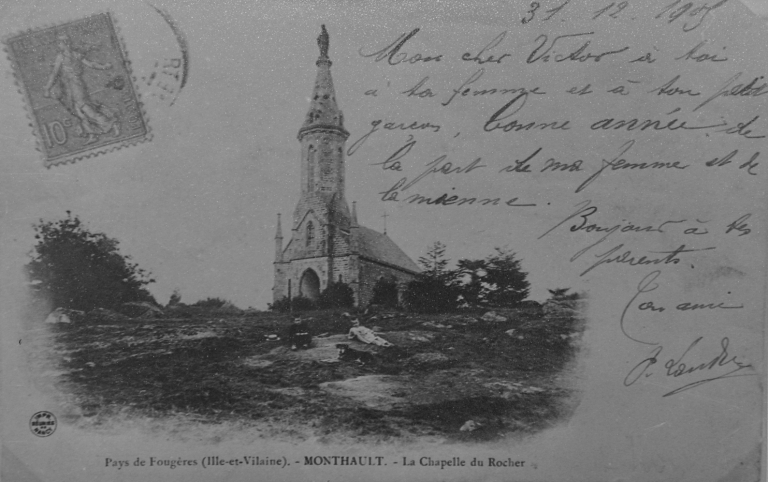 31. 12. 190
Mon cher Victor à toi
à ta femme et à ton petit
garçon, bonne année. de
la part de ma femme et de
la mienne.
Bonjour à tes
parents.
Ton ami
10c
Pays de Fougères (Ille-et-Vilaine). - MONTHAULT. - La Chapelle du Rocher